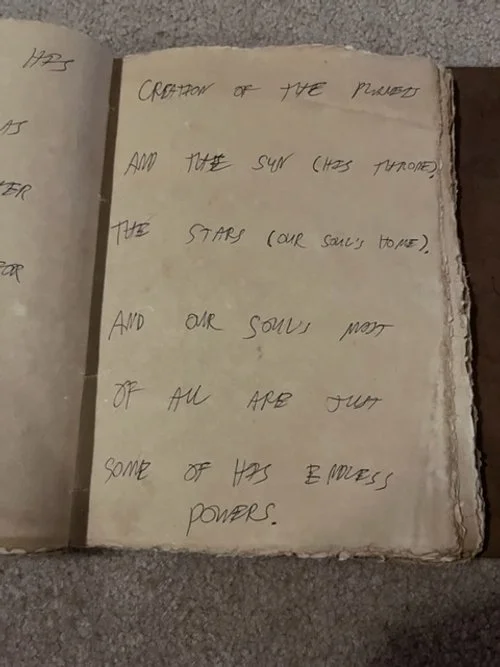 HIS
AS
TER
FOR
CREATION OF THE PLANETS
AND THE SUN (HIS THRONE),
THE STARS (OUR SOUL'S HOME).
AND OUR SOUL'S MOST
OF ALL ARE JUST
SOME OF HIS ENDLESS
POWERS.